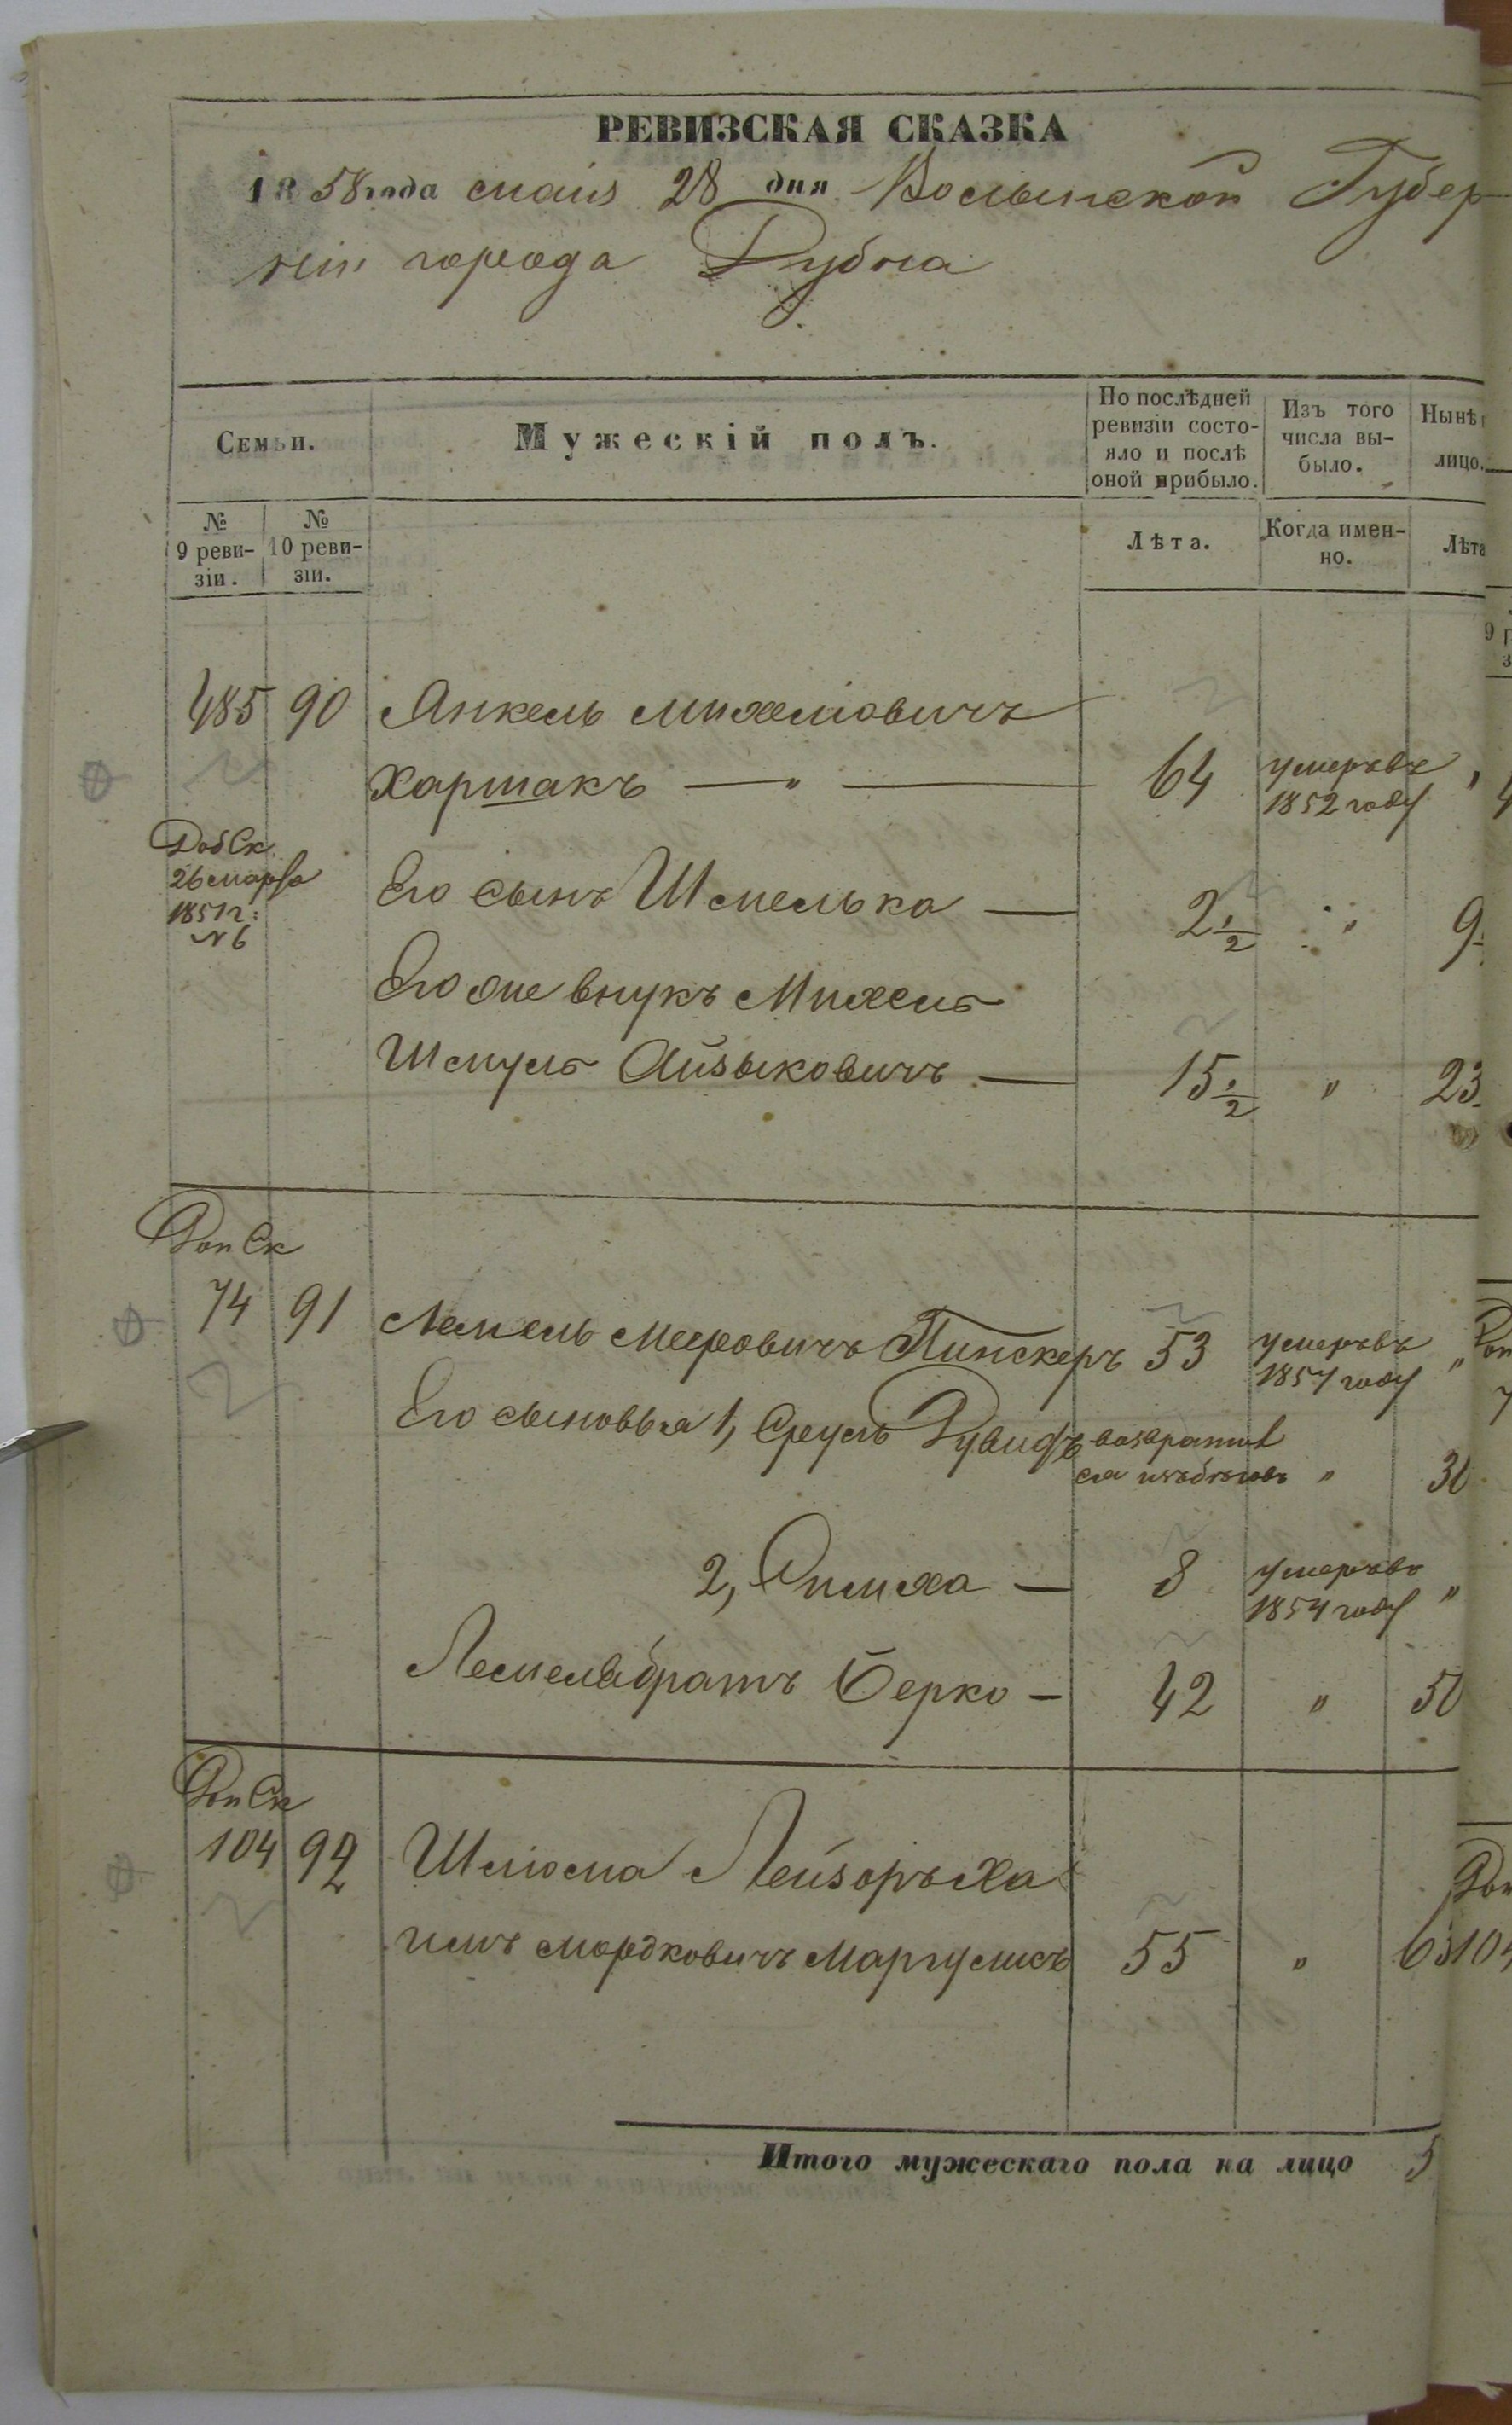 РЕВИЗСКАЯ СКАЗКА
1858 года маія 28 дня Волынской Губер
ніи города Дубна
Семьи.
Мужескій полъ.
По послѣдней ревизіи состо-
яло и послѣ
оной прибыло.
Изъ того
числа вы-
было.
Нынѣ
лицо.
№
9 реви-
зіи.
№
10 реви-
зіи.
Лѣта.
Когда имен-
но.
Лѣта
485 90 Янкель Михелiовичъ
Харшакъ — " — 64 умеръ въ 1852 году "
Доб Ск
26 марта
1851 г:
N 6
Его сынъ Шмелька — 2 1/2 " 9
Его же внукъ Михель
Шмуль Айзыковичъ — 15 1/2 " 23
Доп Ск
74 91 Лемель Мееровичъ Пинскеръ 53 умеръ въ 1857 году "
Его сыновья 1, Сруль Дувидъ возвратил
ся изъ бѣговъ " 30
2, Симха — 8 умеръ въ 1854 году "
Лемеля братъ Берко — 42 " 50
Доп Ск
104 92 Шлiома Лейзоръ Ха
имъ Мордковичъ Маргулисъ 55 " 63
Итого мужескаго пола на лицо 5